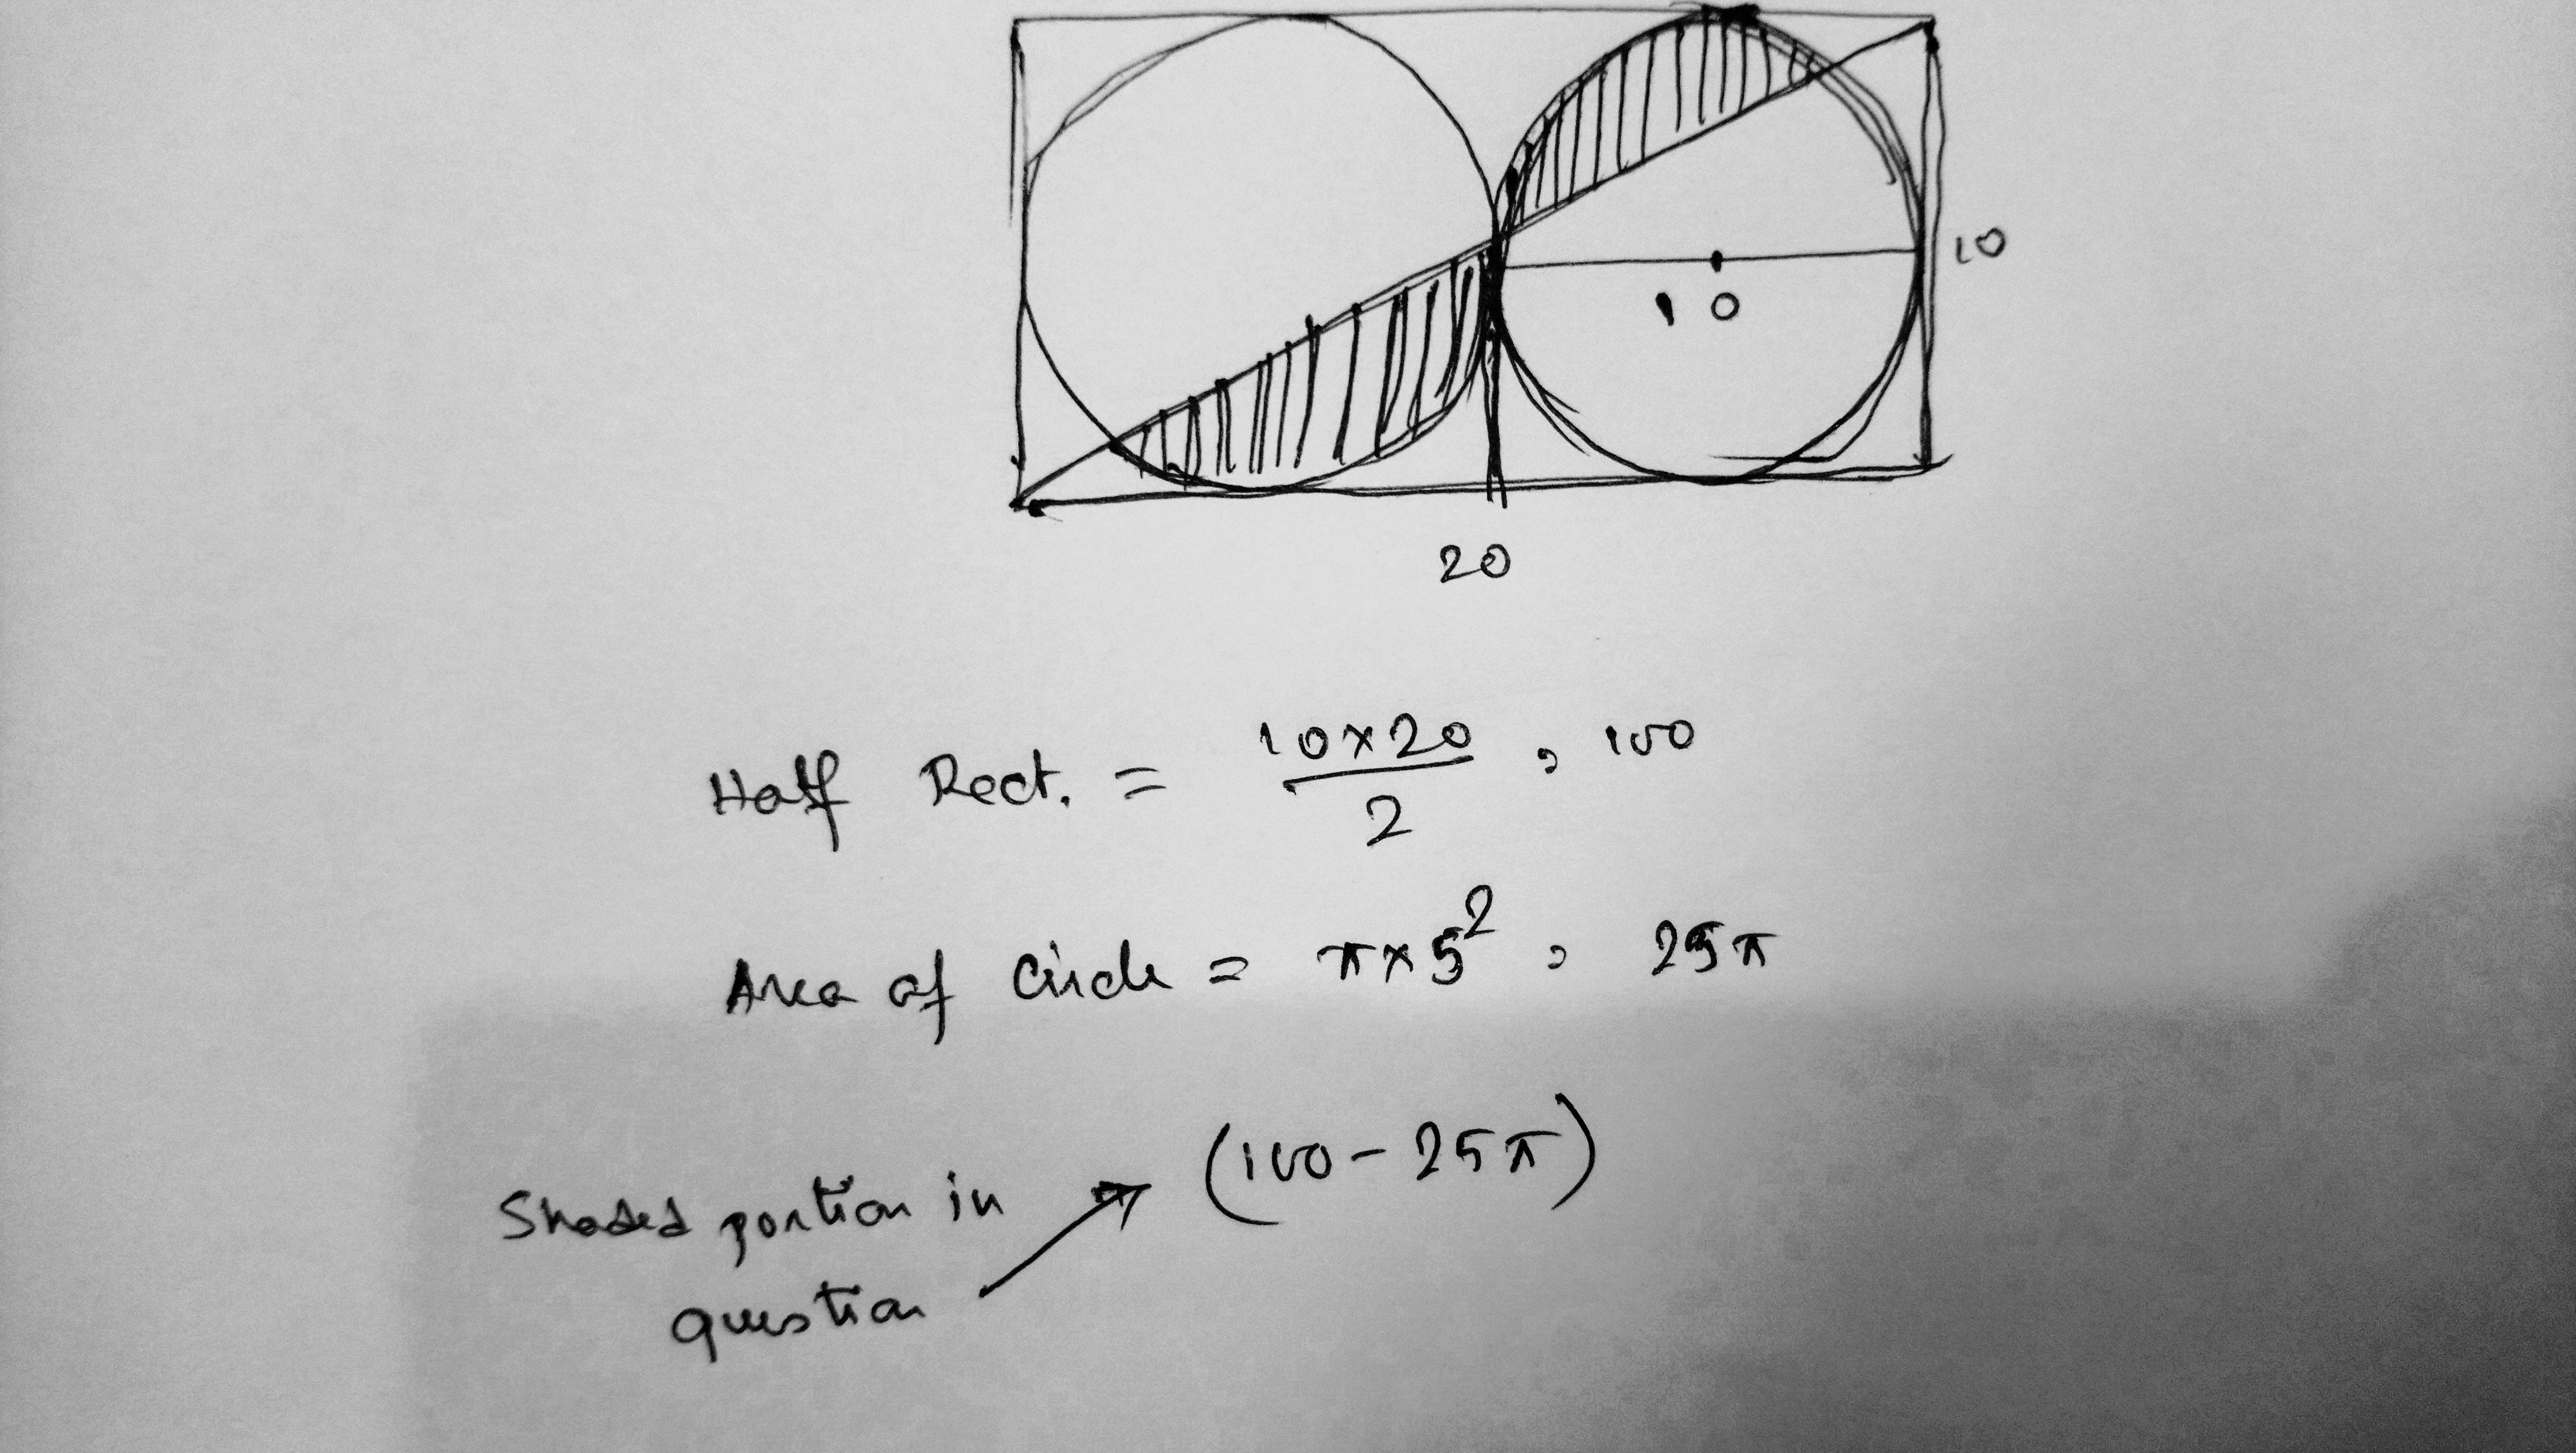 10
10
20
Half Rect. = 10×20/2 , 100
Area of Circle = π×5² , 25π
Shaded portion in → (100-25π)
question